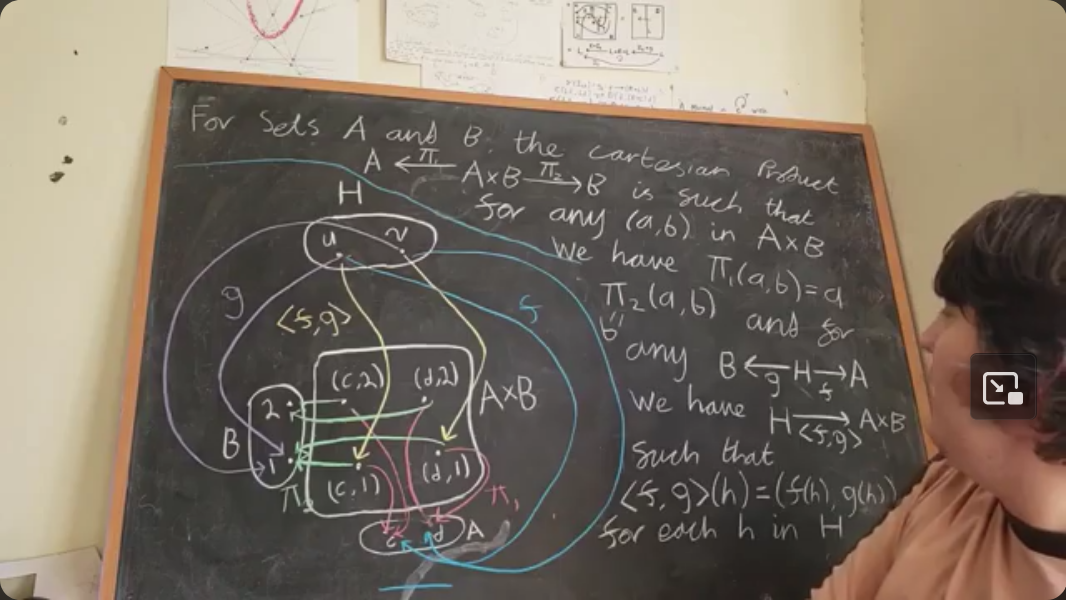 For Sets A and B, the cartesian Product
A ←π₁ A×B π₂→ B is such that
for any (a,b) in A×B
we have π₁(a,b)=a
π₂(a,b) and for
"
b
any B ←g H f→ A
we have H → A×B
<f,g>
such that
<f,g>(h)=(f(h), g(h))
for each h in H
H
u v
g
<f,g>
f
(c,2) (d,2)
A×B
2
B
1
(c,1) (d,1)
π₂
π₁
c d A